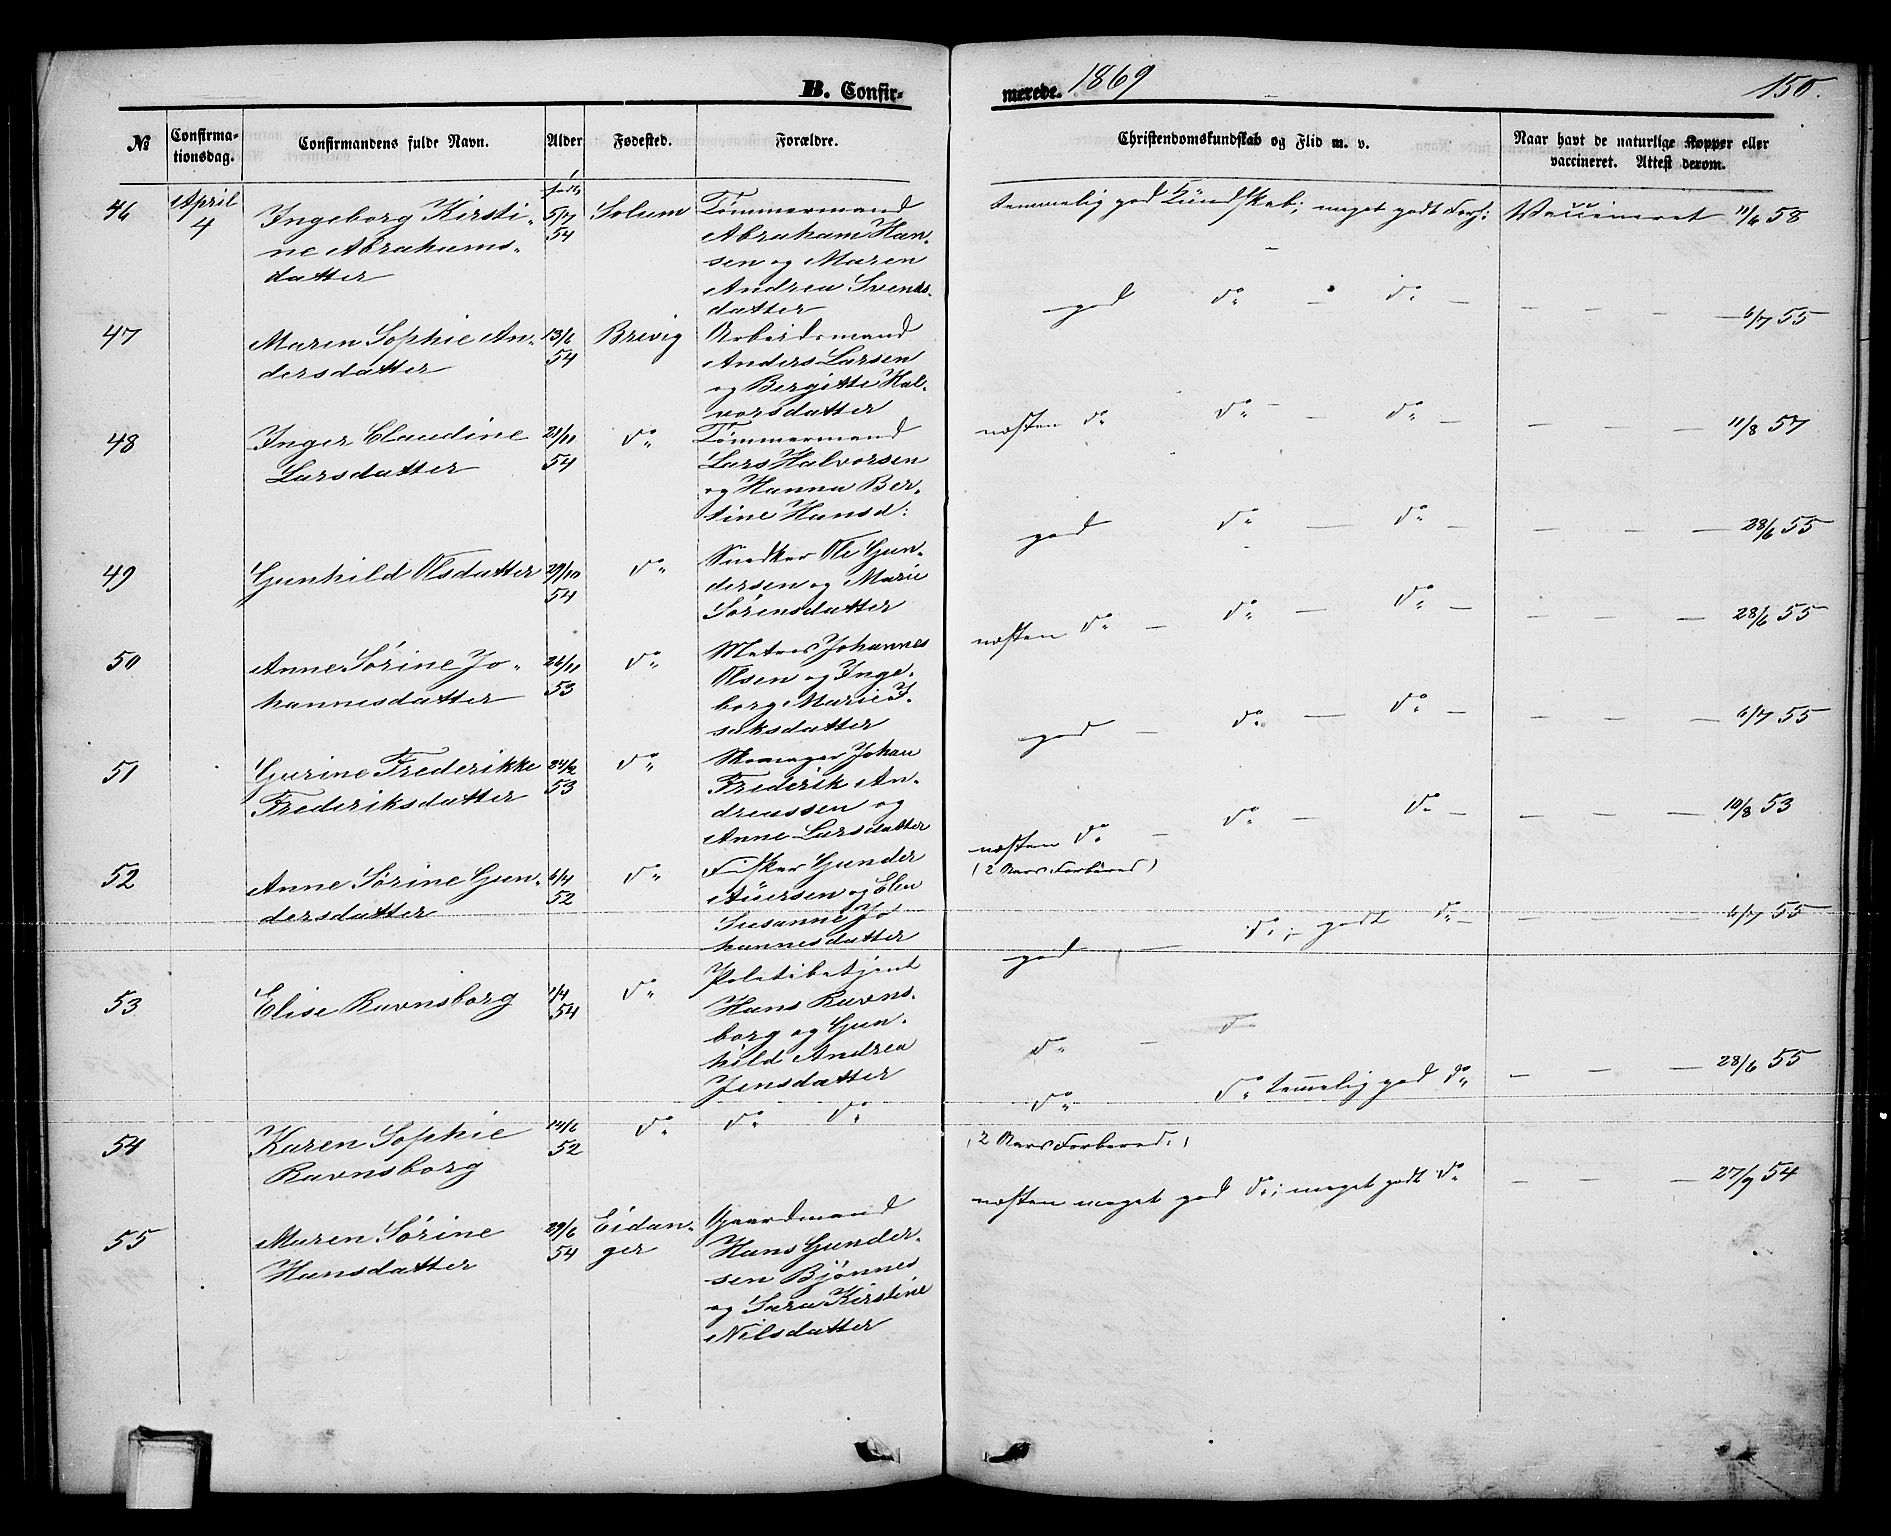 B. Confir-
merede. 1869
150.
№
Confirma-
tionsdag.
Confirmandens fulde Navn.
Alder
Fødested.
Forældre.
Christendomskundskab og Flid m. v.
Naar havt de naturlige Kopper eller
vaccineret. Attest derom.
46
April
4
Ingeborg Kirsti-
ne Abrahams-
datter
født
5/7
54
Solum
Tømmermand
Abraham Han-
sen og Maren
Andrea Svends-
datter
temmelig god Kundskab; meget godt Forh:
Vaccineret 11/6 58
47
Maren Sophie An-
dersdatter
13/6
54
Brevig
Arbeidsmand
Anders Larsen
og Bergitte Hal-
vorsdatter
god do — do —
— — — 6/7 55
48
Inger Claudine
Larsdatter
21/11
54
do
Tømmermand
Lars Halvorsen
og Hanna Ber-
tine Hansd:
næsten do do — do —
— — — 11/8 57
49
Gunhild Olsdatter
29/10
54
do
Snedker Ole Gun-
dersen og Marie
Sørensdatter
god do — do —
— — — 28/6 55
50
Anne Sørine Jo-
hannesdatter
26/11
53
do
Matros Johannes
Olsen og Inge-
borg Marie I-
saksdatter
næsten do — do — do —
— — — 28/6 55
51
Gurine Frederikke
Frederiksdatter
24/12
53
do
Skomager Johan
Frederik An-
dreassen og
Anne Larsdatter
god — do — do —
— — — 6/7 55
52
Anne Sørine Gun-
dersdatter
6/4
52
do
Fisker Gunder
Auersen og Elen
Susanne Jo
hannesdatter
næsten do — do — do —
(2 Aars Forbered)
— — — 10/8 53
53
Elise Ravnsborg
1/4
54
do
Politibetjent
Hans Ravns-
borg og Gun-
hild Andrea
Jensdatter
god — do; godt do —
— — — 6/7 55
do — do
54
Karen Sophie
Ravnsborg
14/6
52
do
do do
do do temmelig god do
(2 Aars Forbered:)
— — — 28/6 55
55
Maren Sørine
Hansdatter
29/6
54
Eidan-
ger
Gaardmand
Hans Gunder-
sen Bjønnes
og Sara Kirstine
Nilsdatter
næsten meget god do; meget godt do
— — — 27/9 54